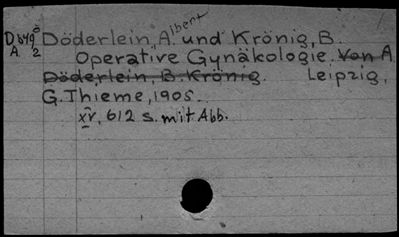 Döderlein, Albert und Krönig, B.
A 2 Operative Gynäkologie. Von A
Döderlein, B. Krönig. Leipzig,
G. Thieme, 1905.
XV, 612 S. mit Abb.